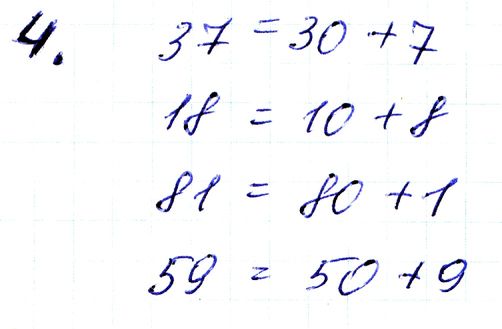 4. 37 = 30 + 7
18 = 10 + 8
81 = 80 + 1
59 = 50 + 9